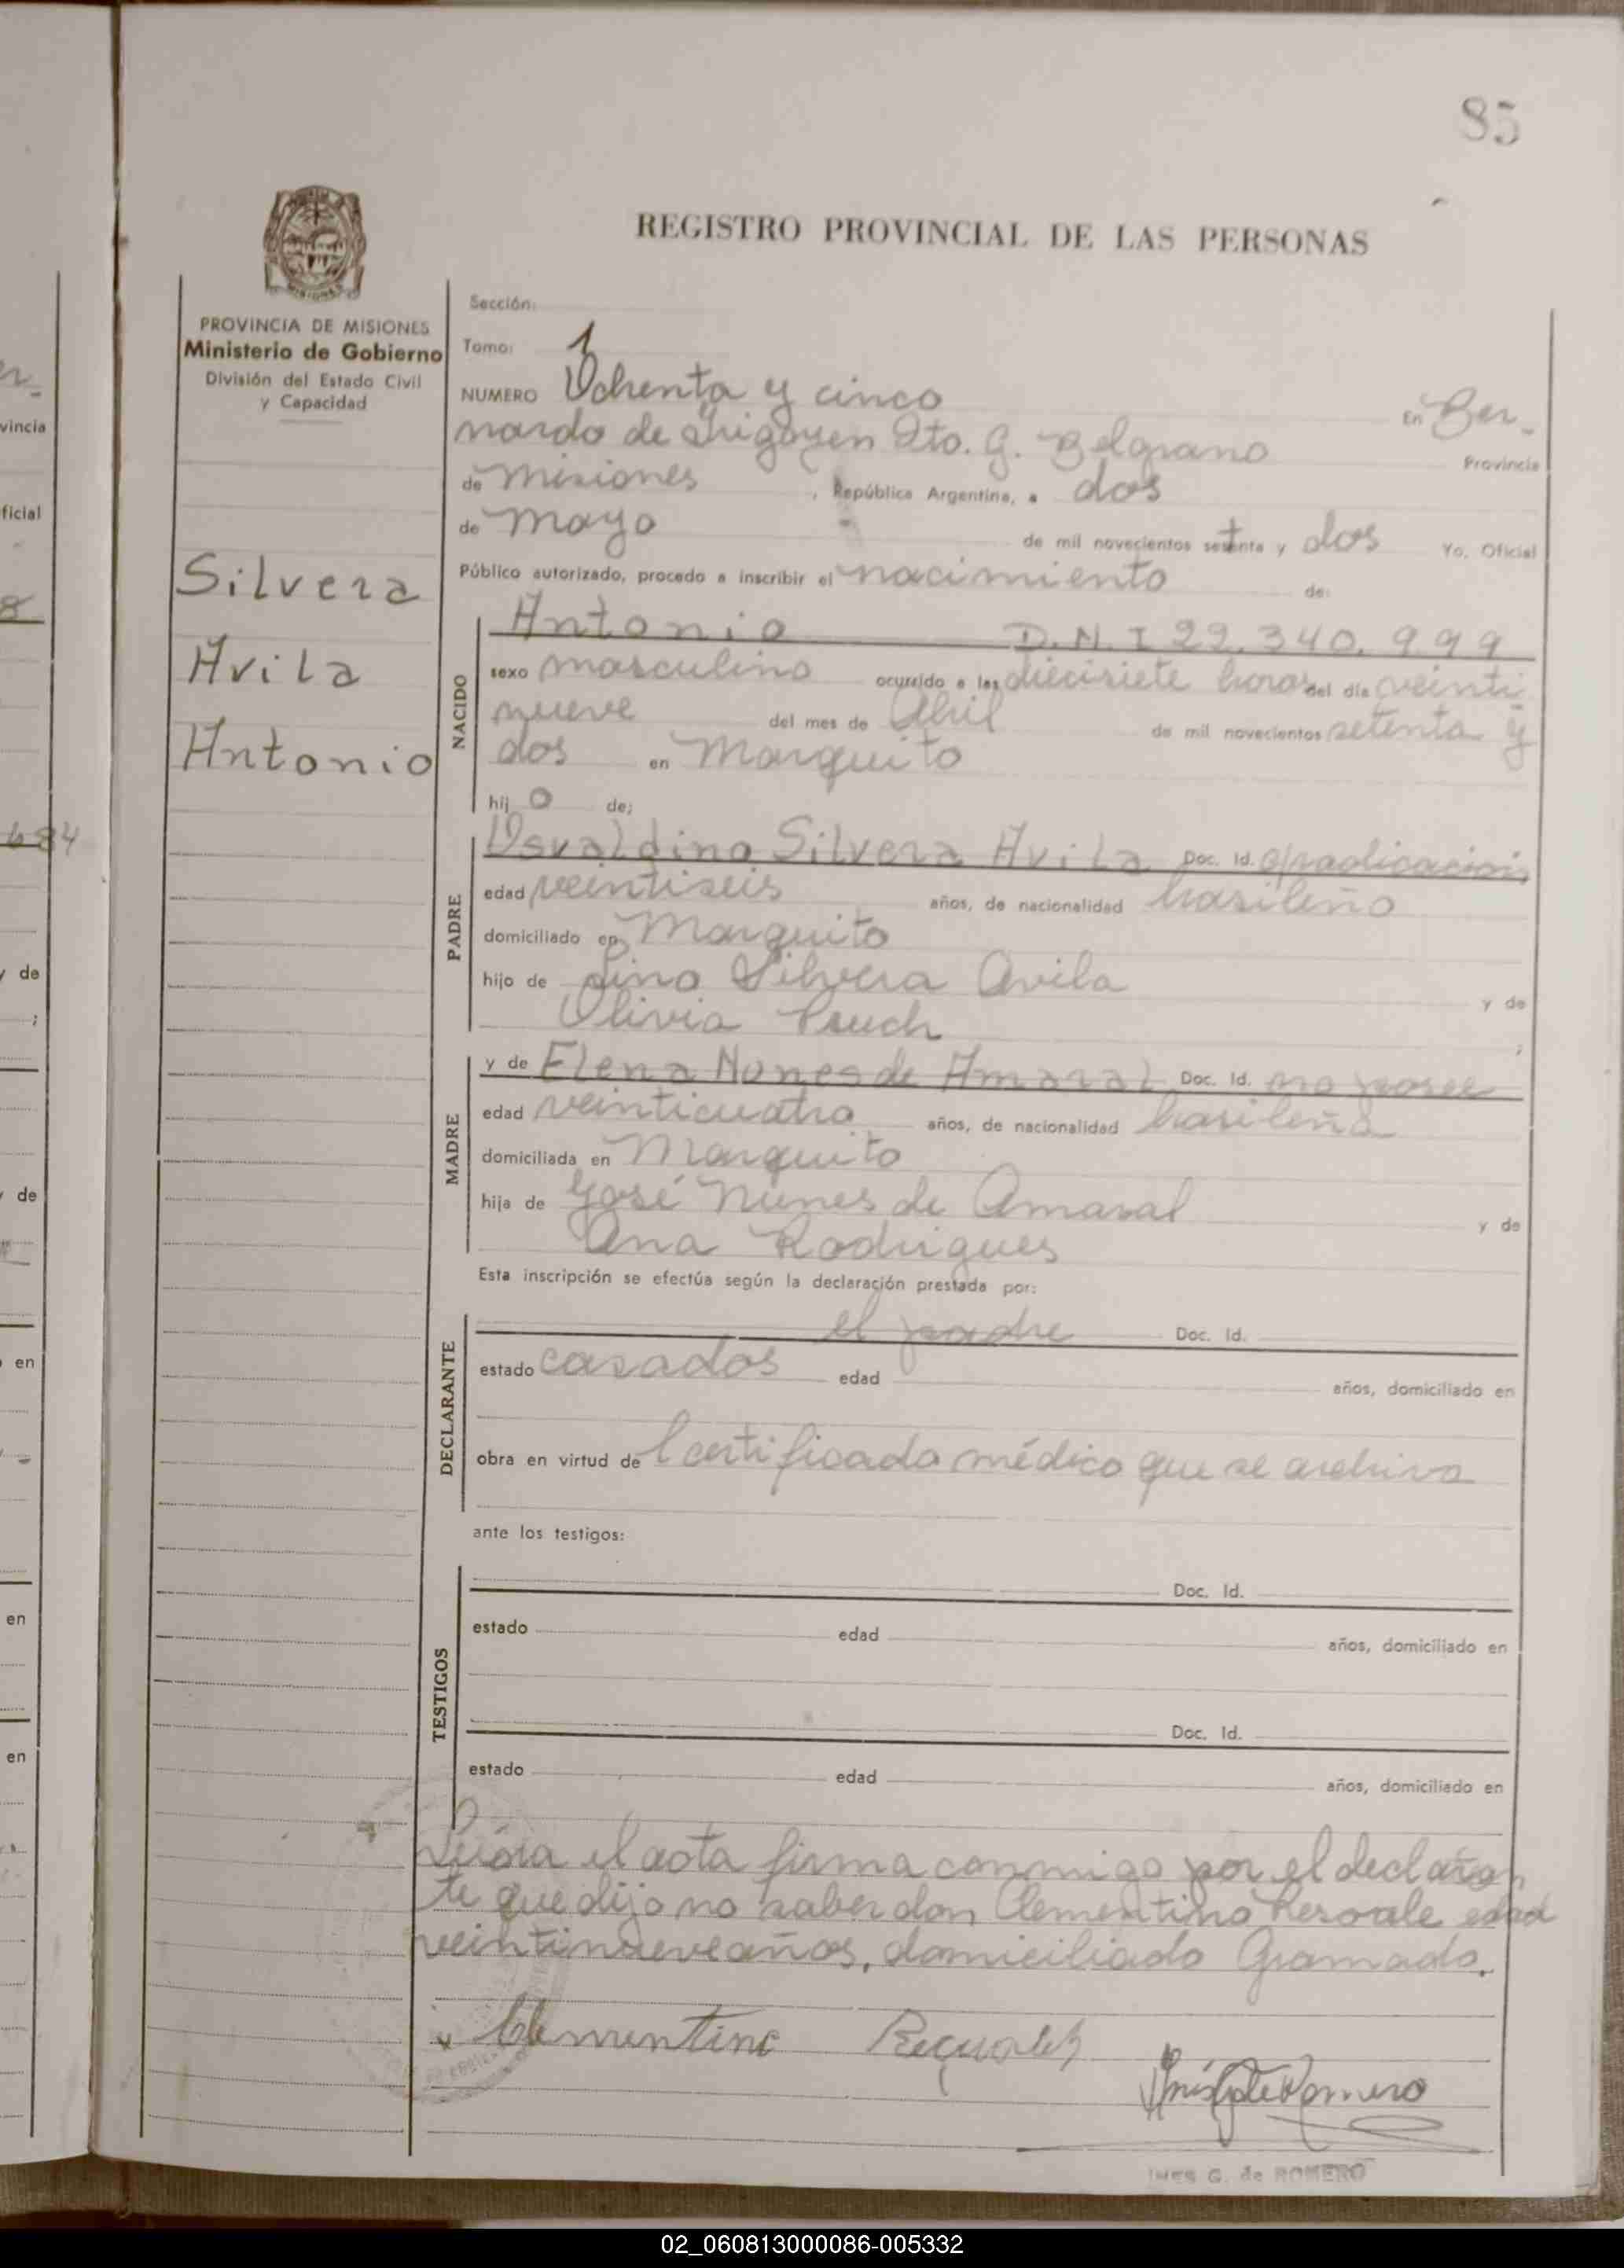 85
REGISTRO PROVINCIAL DE LAS PERSONAS
PROVINCIA DE MISIONES
Ministerio de Gobierno
División del Estado Civil
y Capacidad
Silvera
Avila
Antonio
Sección:
Tomo: 1
NUMERO Ochenta y cinco En Ber-
nardo de Irigoyen Dto. G. Belgrano Provincia
de Misiones, República Argentina, a dos
de Mayo de mil novecientos setenta y dos Yo, Oficial
Público autorizado, procedo a inscribir el nacimiento de:
NACIDO
Antonio D.N.I 22.340.999
sexo masculino ocurrido a las diecisiete horas del día veinti
nueve del mes de Abril de mil novecientos setenta y
dos en Marquito
hij o de;
PADRE
Osvaldino Silvera Avila Doc. Id. c/radicación
edad veintiseis años, de nacionalidad brasileño
domiciliado en Marquito
hijo de Lino Silvera Avila y de
Olivia
MADRE
y de Elena Nunes de Amaral Doc. Id. no posee
edad veinticuatro años, de nacionalidad brasileña
domiciliada en Marquito
hija de José Nunes de Amaral y de
Ana Rodrigues
Esta inscripción se efectúa según la declaración prestada por:
DECLARANTE
el padre Doc. Id.
estado casados edad años, domiciliado en
obra en virtud de l certificado médico que se archiva
ante los testigos:
TESTIGOS
Doc. Id.
estado edad años, domiciliado en
Doc. Id.
estado edad años, domiciliado en
Leída el acta firma conmigo por el declaran
te que dijo no saber don Clementino edad
veintinueve años, domiciliado Gramado.
x Clementino
INES G. de ROMERO
vincia
ficial
8
684
y de
;
y de
en
en
en
02_060813000086-005332